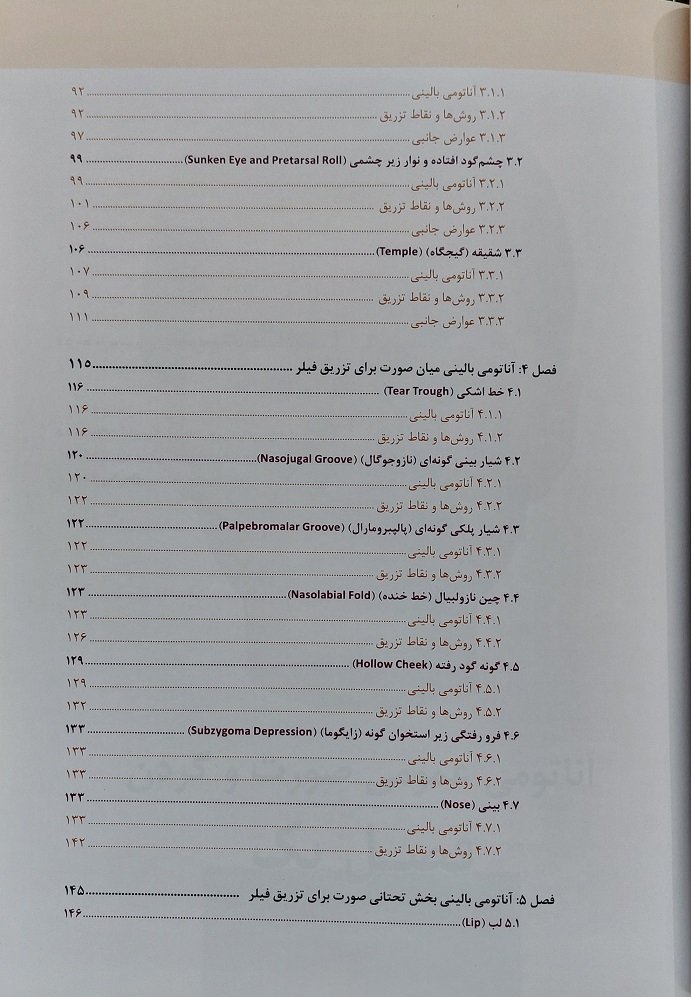 ۳.۱.۱ آناتومی بالینی ........ ۹۲
۳.۱.۲ روش‌ها و نقاط تزریق ........ ۹۲
۳.۱.۳ عوارض جانبی ........ ۹۷
۳.۲ چشم‌گود افتاده و نوار زیر چشمی (Sunken Eye and Pretarsal Roll) ........ ۹۹
۳.۲.۱ آناتومی بالینی ........ ۹۹
۳.۲.۲ روش‌ها و نقاط تزریق ........ ۱۰۱
۳.۲.۳ عوارض جانبی ........ ۱۰۶
۳.۳ شقیقه (گیجگاه) (Temple) ........ ۱۰۶
۳.۳.۱ آناتومی بالینی ........ ۱۰۷
۳.۳.۲ روش‌ها و نقاط تزریق ........ ۱۰۹
۳.۳.۳ عوارض جانبی ........ ۱۱۱
فصل ۴: آناتومی بالینی میان صورت برای تزریق فیلر ........ ۱۱۵
۴.۱ خط اشکی (Tear Trough) ........ ۱۱۶
۴.۱.۱ آناتومی بالینی ........ ۱۱۶
۴.۱.۲ روش‌ها و نقاط تزریق ........ ۱۱۶
۴.۲ شیار بینی گونه‌ای (نازوجوگال) (Nasojugal Groove) ........ ۱۲۰
۴.۲.۱ آناتومی بالینی ........ ۱۲۰
۴.۲.۲ روش‌ها و نقاط تزریق ........ ۱۲۲
۴.۳ شیار پلکی گونه‌ای (پالپبرومارال) (Palpebromalar Groove) ........ ۱۲۲
۴.۳.۱ آناتومی بالینی ........ ۱۲۲
۴.۳.۲ روش‌ها و نقاط تزریق ........ ۱۲۳
۴.۴ چین نازولبیال (خط خنده) (Nasolabial Fold) ........ ۱۲۳
۴.۴.۱ آناتومی بالینی ........ ۱۲۳
۴.۴.۲ روش‌ها و نقاط تزریق ........ ۱۲۶
۴.۵ گونه گود رفته (Hollow Cheek) ........ ۱۲۹
۴.۵.۱ آناتومی بالینی ........ ۱۲۹
۴.۵.۲ روش‌ها و نقاط تزریق ........ ۱۳۲
۴.۶ فرو رفتگی زیر استخوان گونه (زایگوما) (Subzygoma Depression) ........ ۱۳۳
۴.۶.۱ آناتومی بالینی ........ ۱۳۳
۴.۶.۲ روش‌ها و نقاط تزریق ........ ۱۳۳
۴.۷ بینی (Nose) ........ ۱۳۳
۴.۷.۱ آناتومی بالینی ........ ۱۳۳
۴.۷.۲ روش‌ها و نقاط تزریق ........ ۱۴۲
فصل ۵: آناتومی بالینی بخش تحتانی صورت برای تزریق فیلر ........ ۱۴۵
۵.۱ لب (Lip) ........ ۱۴۶